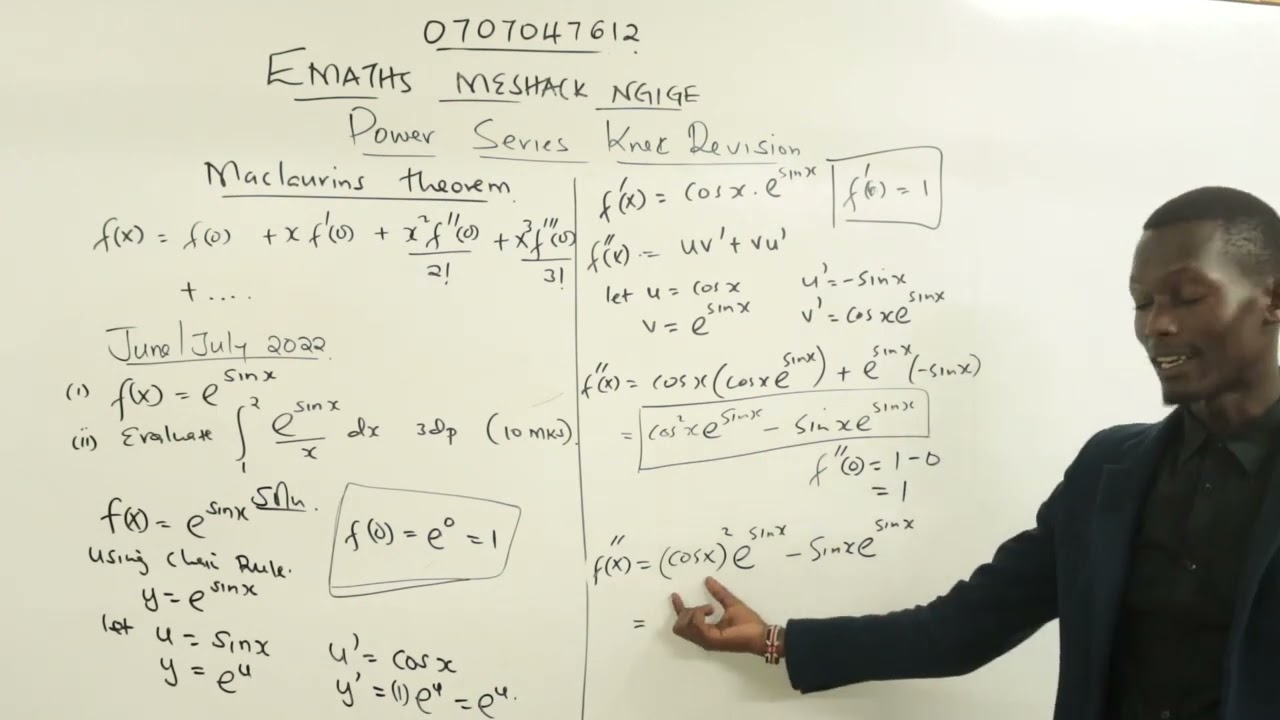 0707047612
EMATHS MESHACK NGIGE
Power Series Knec Revision
Maclaurins theorem
f(x) = f(0) + x f'(0) + x² f''(0)/2! + x³ f'''(0)/3!
+ ....
June/July 2022
(i) f(x) = e^sin x
(ii) Evaluate ∫₁² e^sin x / x dx 3dp (10 MKS)
Soln.
f(x) = e^sin x
f(0) = e⁰ = 1
Using Chain Rule.
y = e^sin x
let u = sin x u' = cos x
y = e^u y' = (1) e^u = e^u.
f'(x) = cos x . e^sin x f'(0) = 1
f''(x) = uv' + vu'
let u = cos x u' = -sin x
v = e^sin x v' = cos x e^sin x
f''(x) = cos x (cos x e^sin x) + e^sin x (-sin x)
= cos² x e^sin x - sin x e^sin x
f''(0) = 1 - 0
= 1
f''(x) = (cos x)² e^sin x - sin x e^sin x
=